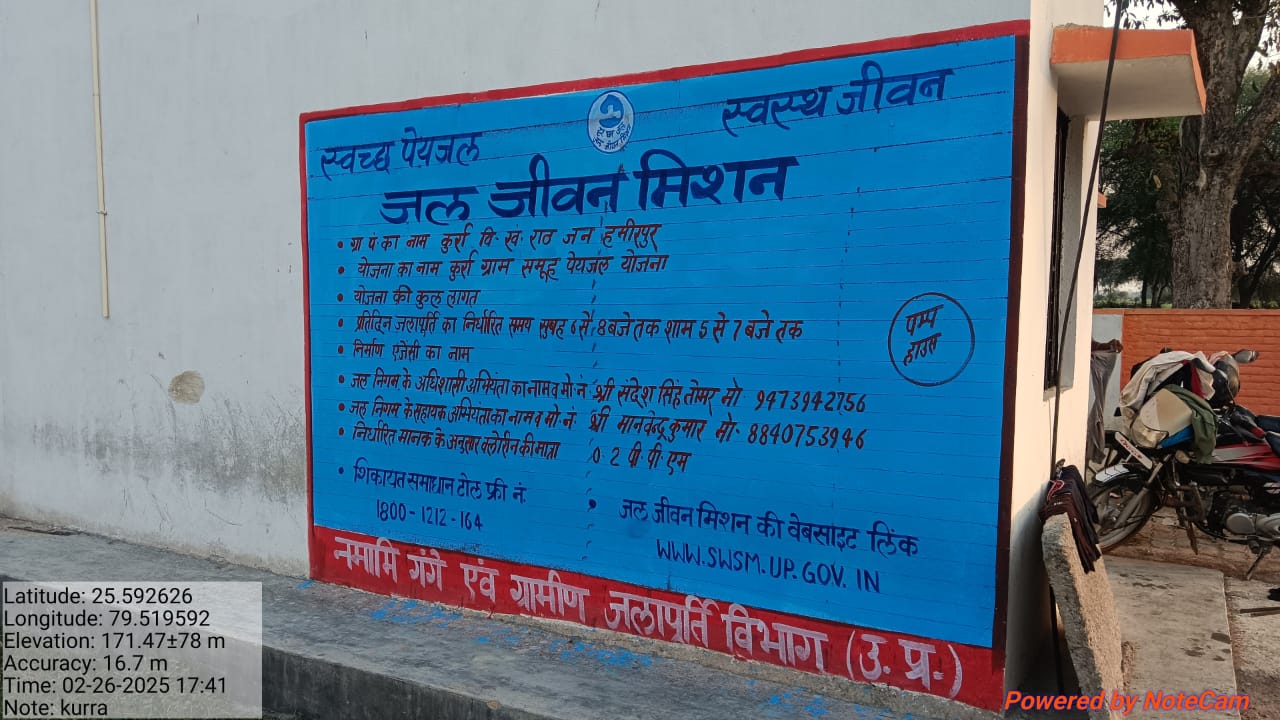 स्वच्छ पेयजल
स्वस्थ जीवन
जल जीवन मिशन
• ग्रा पं का नाम कुर्रा वि· ख· राठ जन हमीरपुर
• योजना का नाम कुर्रा ग्राम समूह पेयजल योजना
• योजना की कुल लागत
• प्रतिदिन जलापूर्ति का निर्धारित समय सुबह 6 से 8 बजे तक शाम 5 से 7 बजे तक
• निर्माण एजेंसी का नाम
• जल निगम के अधिशासी अभियंता का नाम व मो· नं· श्री संदेश सिंह तोमर मो· 9473942756
• जल निगम के सहायक अभियंता का नाम व मो· नं· श्री मानवेन्द्र कुमार मो· 8840753946
• निर्धारित मानक के अनुसार क्लोरीन की मात्रा 0·2 पी पी एम
• शिकायत समाधान टोल फ्री नं·
1800-1212-164
• जल जीवन मिशन की वेबसाइट लिंक
WWW.SWSM.UP.GOV.IN
पम्प
हाउस
नमामि गंगे एवं ग्रामीण जलापूर्ति विभाग (उ. प्र.)
Latitude: 25.592626
Longitude: 79.519592
Elevation: 171.47±78 m
Accuracy: 16.7 m
Time: 02-26-2025 17:41
Note: kurra
Powered by NoteCam